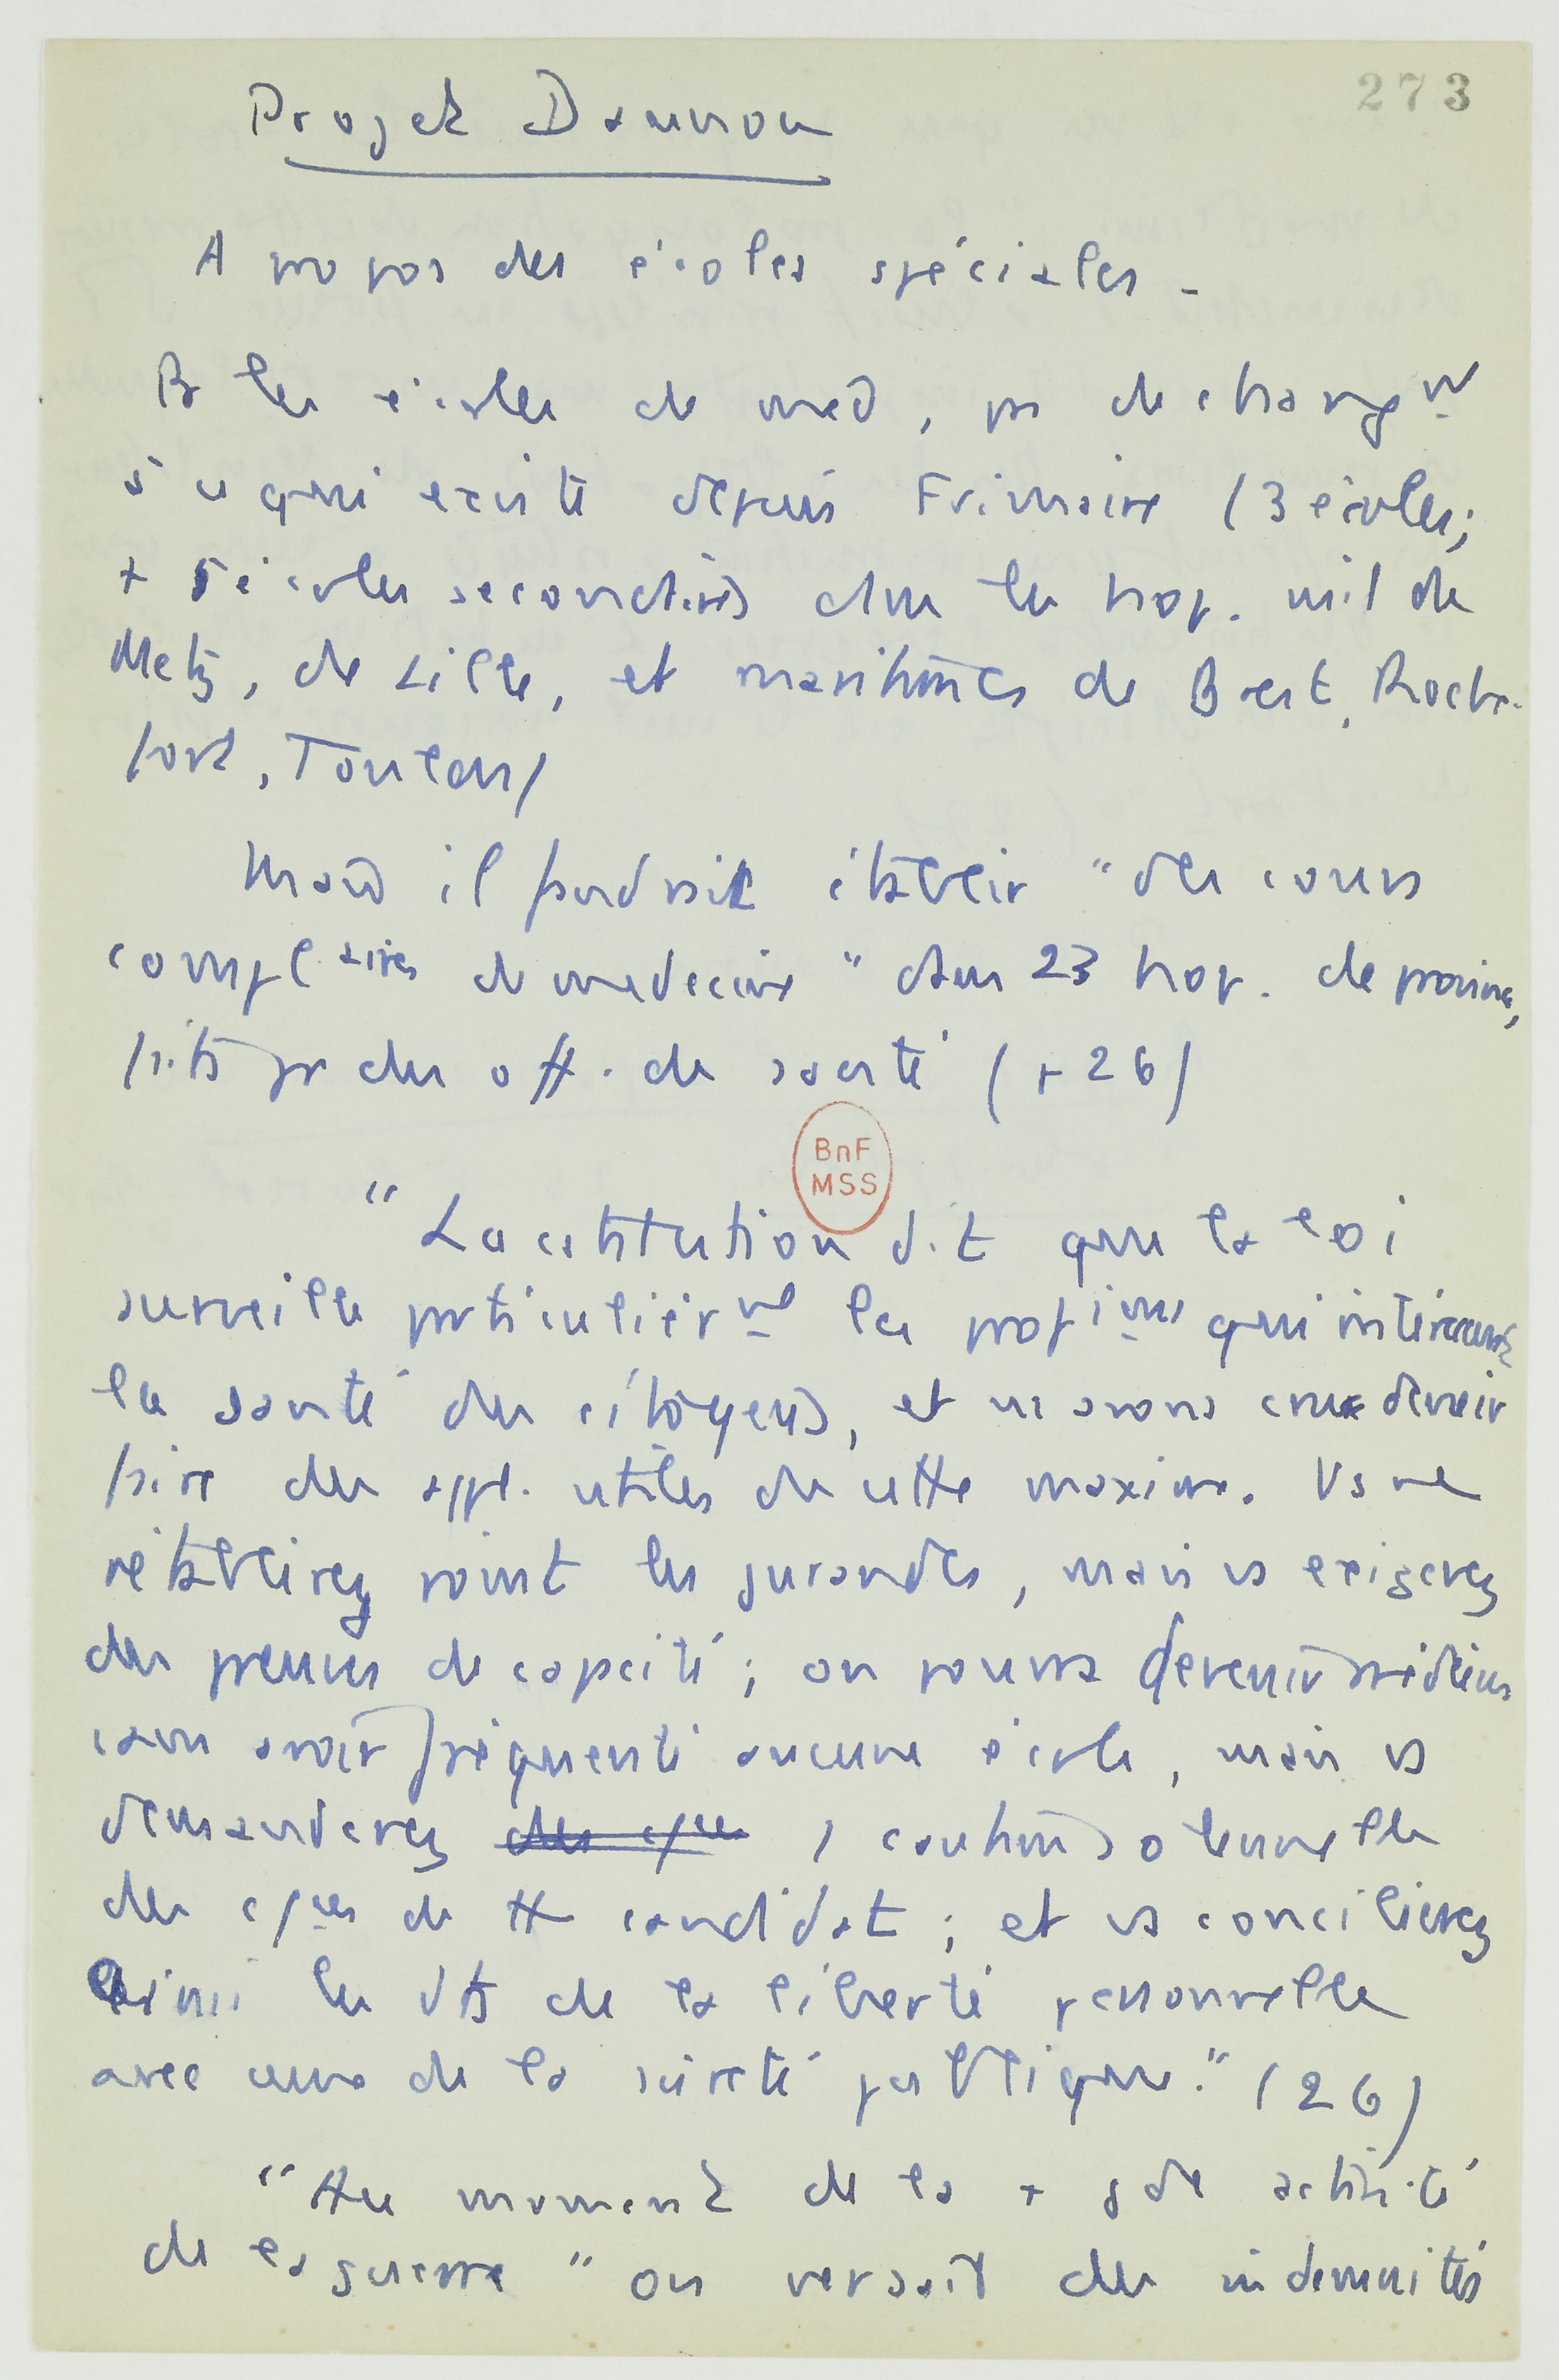 273
Projet Daunou
A propos des écoles spéciales -
Pr les écoles de med, pas de changent
à ce qui existe depuis Frimaire (3 écoles;
+ 5 écoles secondaires dans les hop. mil de
Metz, de Lille, et maritimes de Brest, Roche-
fort, Toulon)
Mais il faudrait établir "des cours
complaires de medecine" dans 23 hop. de province,
faits pr des off. de santé (p 26)
BnF
MSS
"La cstitution dit que la loi
surveille particulièrent les profions qui intéressent
la santé des citoyens, et ns avons cru devoir
faire des appl. utiles de cette maxime. Vs ne
rétablirez point les jurandes, mais vs exigerez
des preuves de capacité; on pourra devenir médecin
sans avoir fréquenté aucune école, mais vs
demanderez caution solennelle
des cces de tt candidat; et vs concilierez
ainsi les dts de la liberté personnelle
avec ceux de la sûreté publique." (26)
"Au moment de la + gde activité
de la guerre" on versait des indemnités